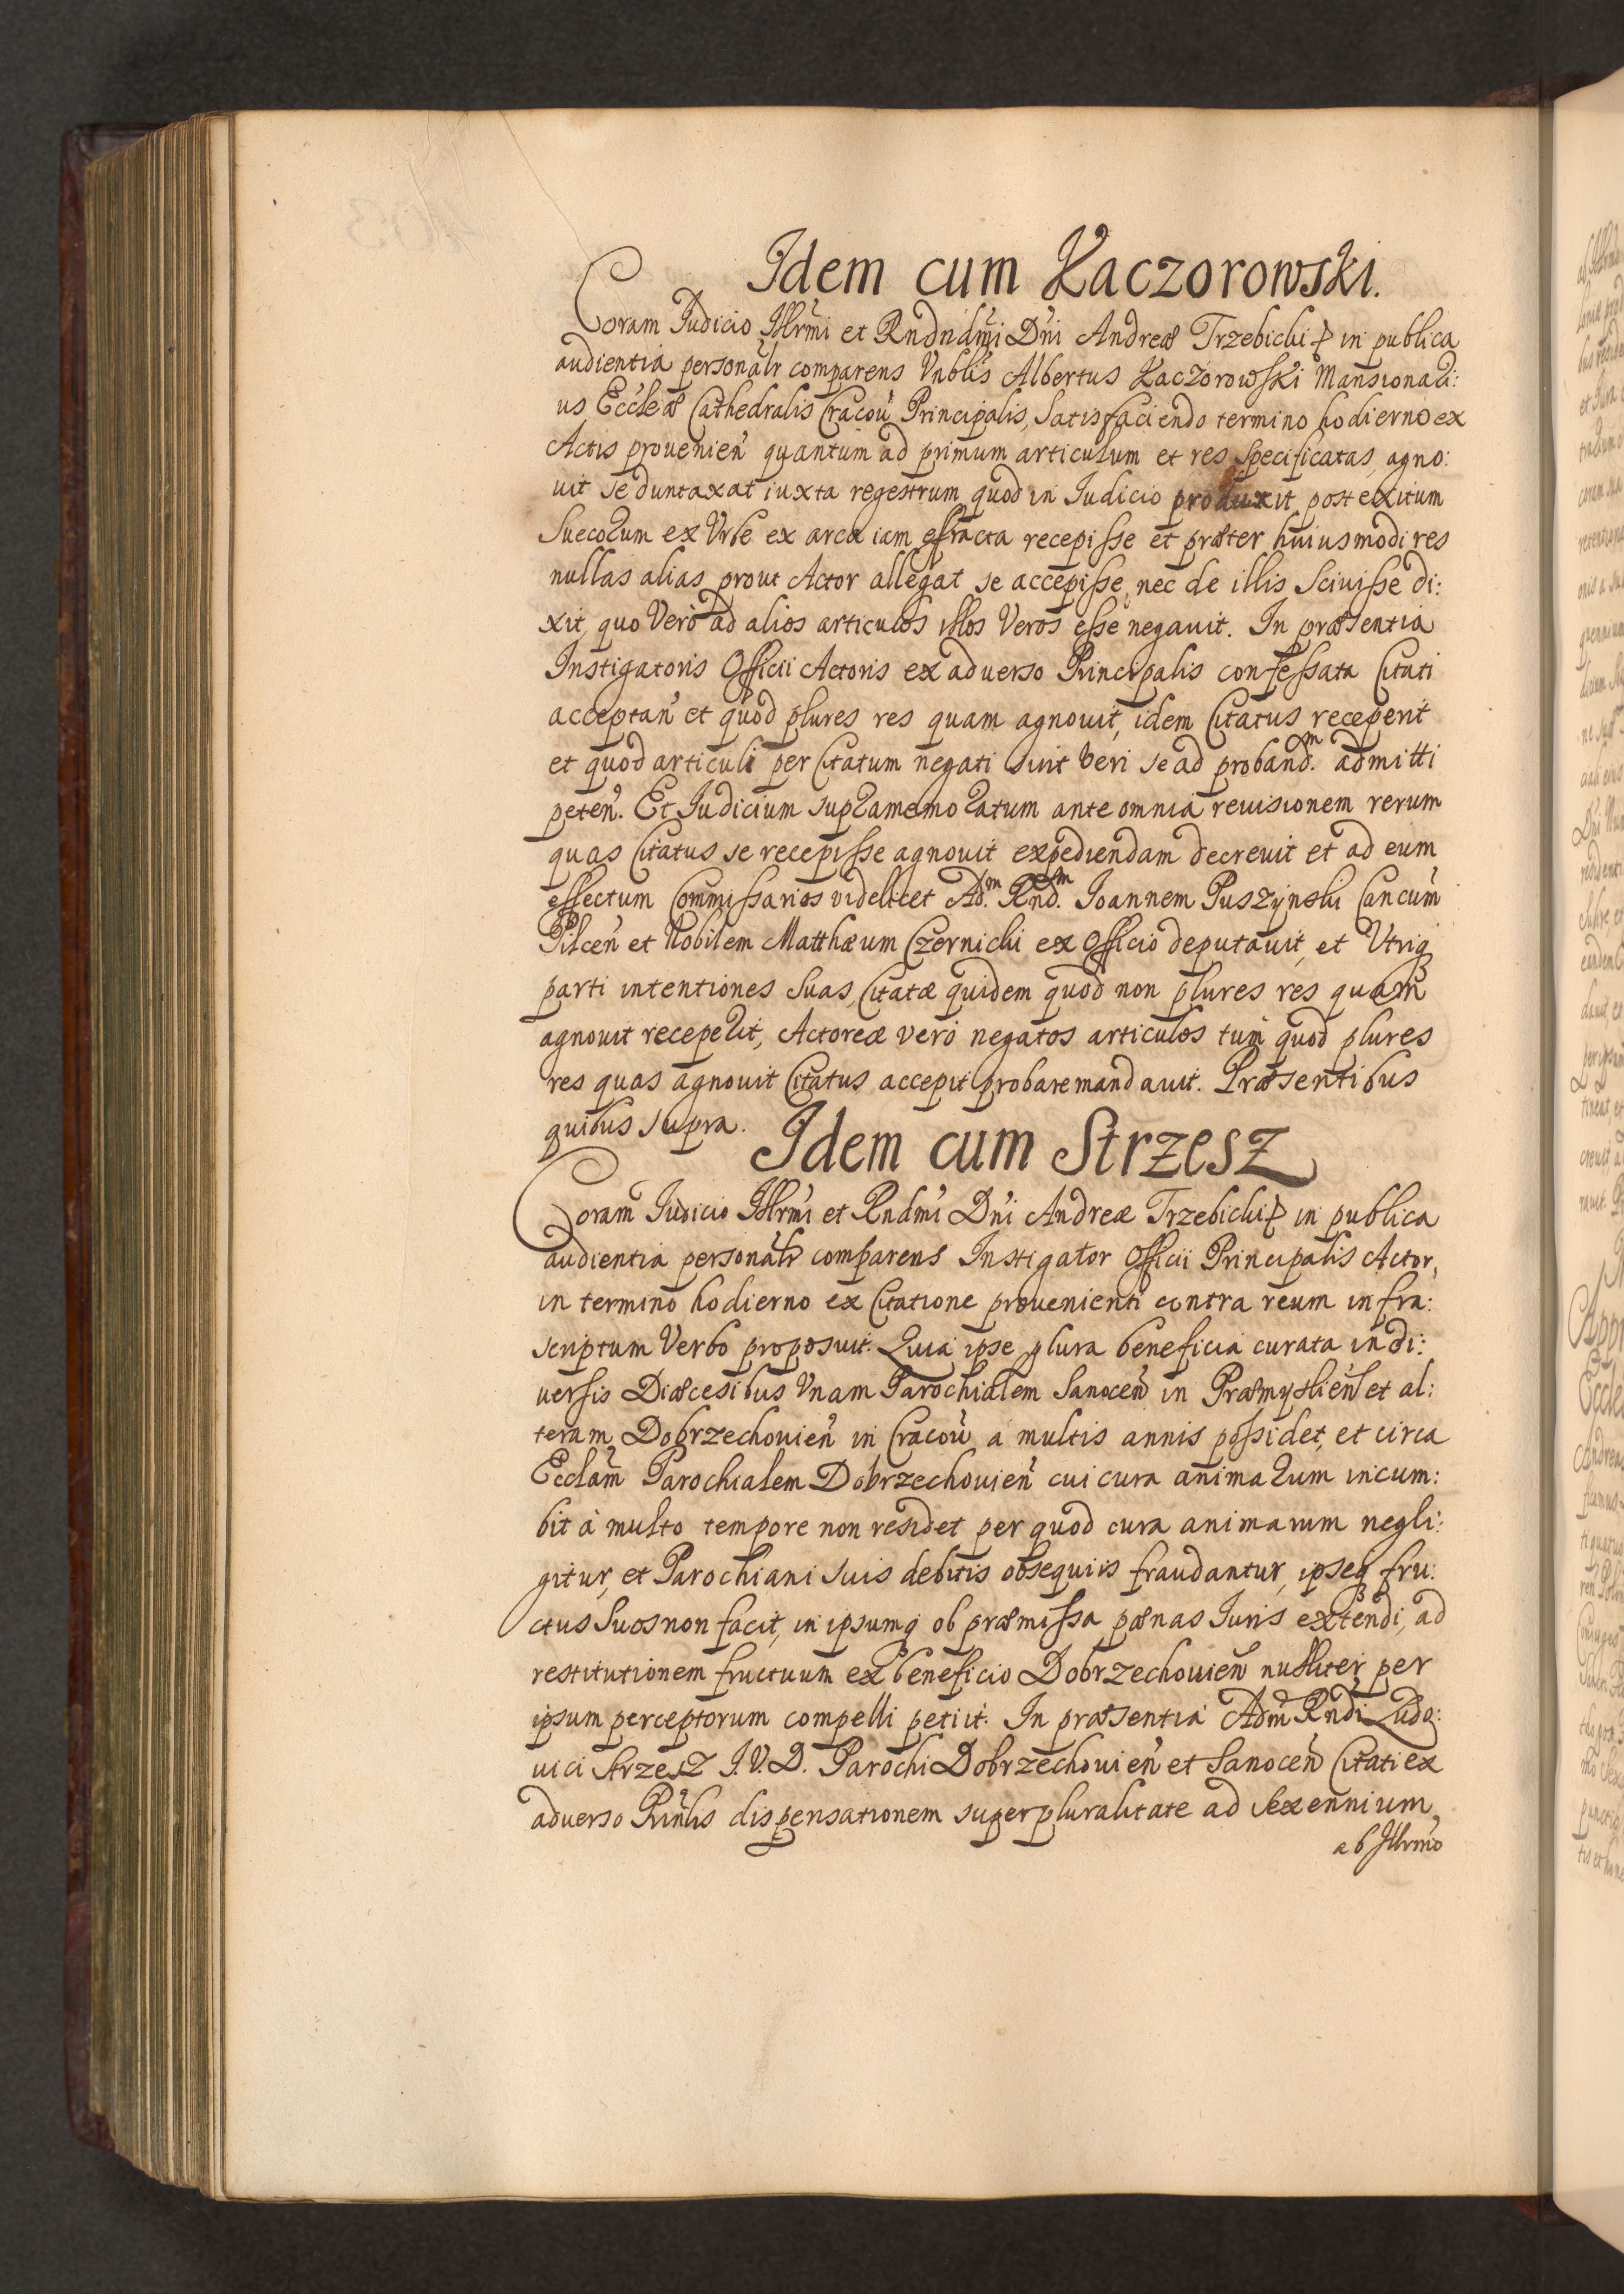 Idem cum Kaczorowski.
Coram Iudicio Illrmi et Rndndmi Dni Andreæ Trzebicki in publica
audientia personalr comparens Vnblis Albertus Kaczorowski Mansionari:
us Eccleæ Cathedralis Cracou Principalis, Satisfaciendo termino hodierno ex
Actis prouenien quantum ad primum articulum et res Specificatas, agno:
uit se duntaxat iuxta regestrum quod in Iudicio produxit, post exitum
Suecorum ex Vrbe ex arca iam effracta recepisse et præter huiusmodi res
nullas alias prout Actor allegat se accepisse, nec de illis Sciuisse di:
xit, quo Verò ad alios articulos illos Veros esse negauit. In præsentia
Instigatoris Officii Actoris ex aduerso Principalis confessata Citati
acceptan et quod plures res quam agnouit, idem Citatus receperit
et quod articuli per Citatum negati sint Veri se ad proband.m admitti
peten. Et Iudicium supramemoratum ante omnia reuisionem rerum
quas Citatus se recepisse agnouit expediendam decreuit et ad eum
effectum Commissarios videlicet Ad.m Rnd.m Ioannem Puszynski Cancum
Pilcen et Nobilem Matthæum Czernicki ex Officio deputauit, et Vtriq
parti intentiones Suas, Citatæ quidem quod non plures res quam
agnouit receperit, Actoreæ verò negatos articulos tum quod plures
res quas agnouit Citatus accepit probare mandauit. Præsentibus
quibus supra.
Idem cum Strzesz
Coram Iudicio Illrmi et Rndmi Dni Andreæ Trzebicki in publica
audientia personalr comparens Instigator Officii Principalis Actor,
in termino hodierno ex Citatione prouenienti contra reum infra:
scriptum Verbo proposuit. Quia ipse plura beneficia curata in di:
uersis Diæcesibus Vnam Parochialem Sanocen in Præmyslien et al:
teram Dobrzechouien in Cracou à multis annis possidet, et circa
Ecclam Parochialem Dobrzechouien cui cura animarum incum:
bit à multo tempore non residet per quod cura animarum negli:
gitur, et Parochiani suis debitis obsequiis fraudantur, ipseq fru:
ctus Suos non facit, in ipsumq ob præmissa pænas Iuris extendi, ad
restitutionem fructuum ex beneficio Dobrzechouien nulliter per
ipsum perceptorum compelli petiit. In præsentia Adm Rndi Ludo:
uici Strzesz I.V.D. Parochi Dobrzechouien et Sanocen Citati ex
aduerso Prinlis dispensationem super pluralitate ad Sexennium
ab Illrmo